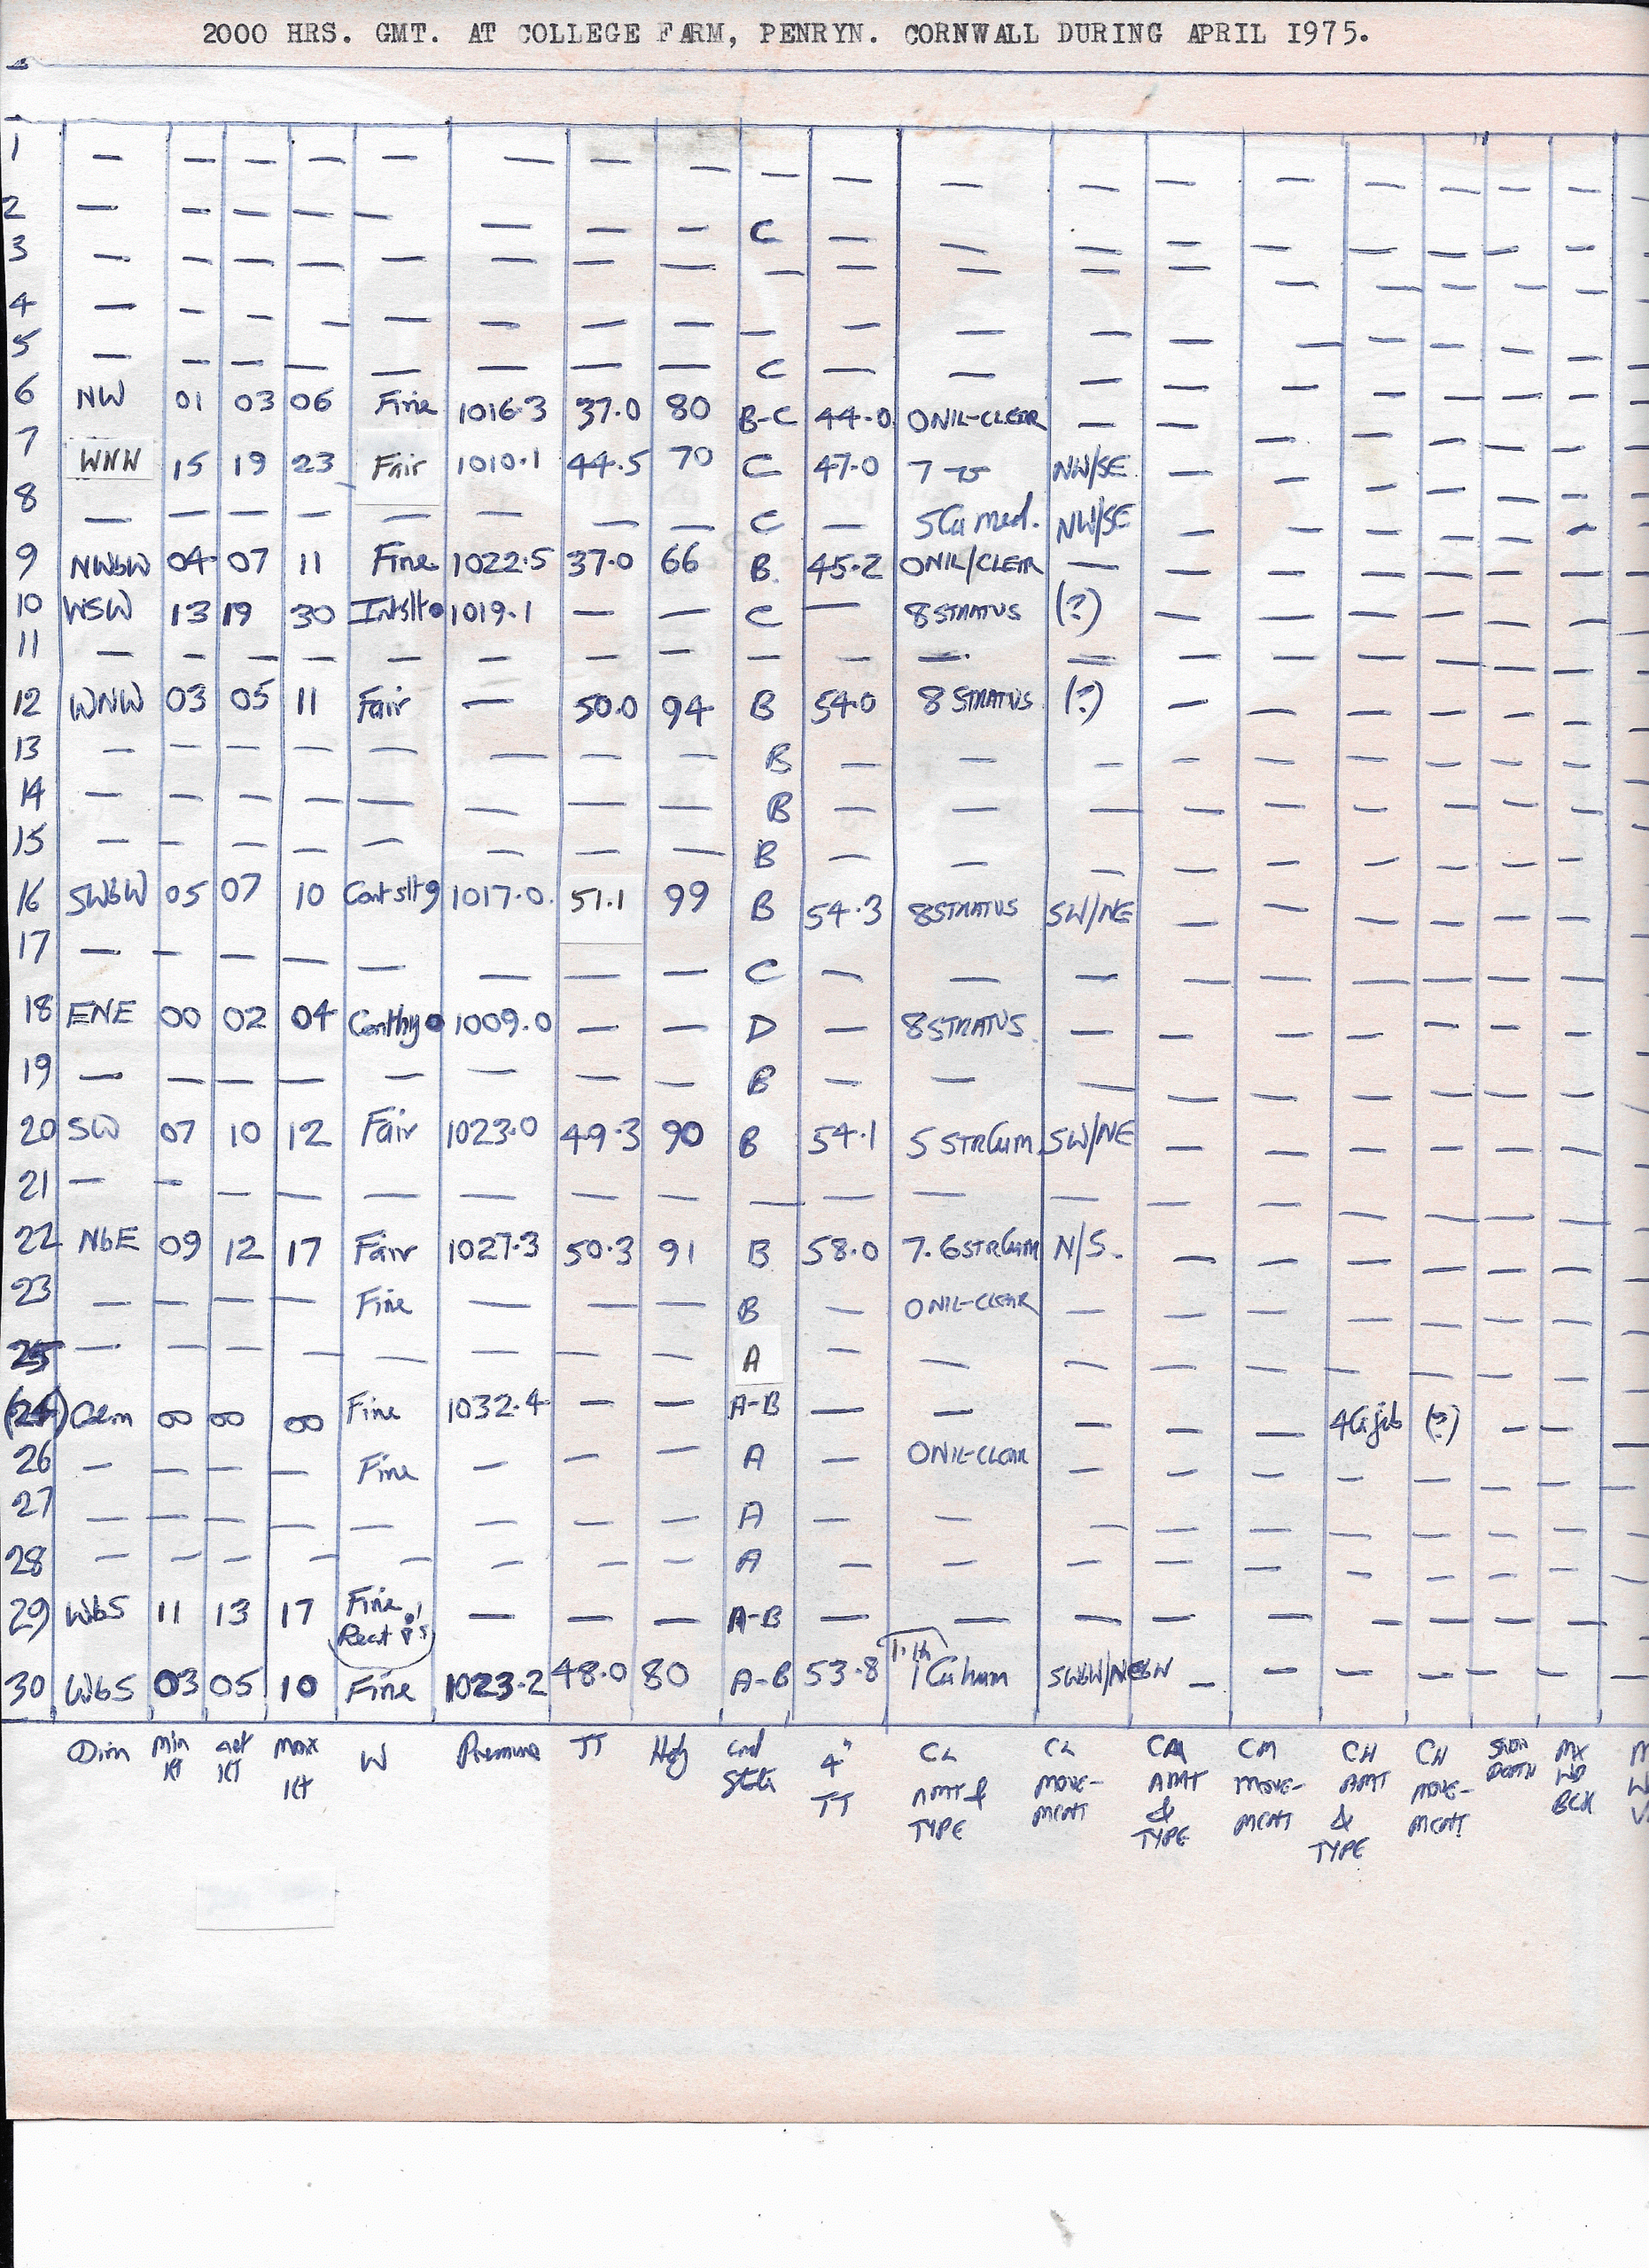 2000 HRS. GMT. AT COLLEGE FARM, PENRYN. CORNWALL DURING APRIL 1975.
1 — — — — — — — — — — — — — — — — — —
2 — — — — — — — — C — — — — — — — — —
3 — — — — — — — — — — — — — — — — — —
4 — — — — — — — — — — — — — — — — — —
5 — — — — — — — — C — — — — — — — — —
6 NW 01 03 06 Fine 1016.3 37.0 80 B-C 44.0 0 NIL-CLEAR — — — — — — —
7 WNW 15 19 23 Fair 1010.1 44.5 70 C 47.0 7 NW/SE — — — — — —
8 — — — — — — — — C — 5 Cu med. NW/SE — — — — — —
9 NWbW 04 07 11 Fine 1022.5 37.0 66 B. 45.2 0 NIL/CLEAR — — — — — — —
10 WSW 13 19 30 Intslt● 1019.1 — — C — 8 STRATUS (?) — — — — — —
11 — — — — — — — — — — — — — — — — — —
12 WNW 03 05 11 Fair — 50.0 94 B 54.0 8 STRATUS (?) — — — — — —
13 — — — — — — — — B — — — — — — — — —
14 — — — — — — — — B — — — — — — — — —
15 — — — — — — — — B — — — — — — — — —
16 SWbW 05 07 10 Cont slt 9 1017.0. 51.1 99 B 54.3 8 STRATUS SW/NE — — — — — —
17 — — — — — — — — C — — — — — — — — —
18 ENE 00 02 04 Conthy● 1009.0 — — D — 8 STRATUS. — — — — — — —
19 — — — — — — — — B — — — — — — — — —
20 SW 07 10 12 Fair 1023.0 49.3 90 B 54.1 5 STRCum SW/NE — — — — — —
21 — — — — — — — — — — — — — — — — — —
22 NbE 09 12 17 Fair 1027.3 50.3 91 B 58.0 7.6 STRCum N/S. — — — — — —
23 — — — — Fine — — — B — 0 NIL-CLEAR — — — — — — —
25 — — — — — — — — A — — — — — — — — —
(24) Calm 00 00 00 Fine 1032.4 — — A-B — — — — — 4 Ci fib (?) — —
26 — — — — Fine — — — A — 0 NIL-CLEAR — — — — — — —
27 — — — — — — — — A — — — — — — — — —
28 — — — — — — — — A — — — — — — — — —
29 WbS 11 13 17 Fine — — — A-B — — — — — — — — —
Rect
30 WbS 03 05 10 Fine 1023.2 48.0 80 A-B 53.8 1 Cu hum SWbW/NEbW — — — — — —
Dirn min Kt act Kt max Kt W Pressure TT Hdy Gnd State 4" TT CL AMT & TYPE CL MOVE-MENT CM AMT & TYPE CM MOVE-MENT CH AMT & TYPE CH MOVE-MENT SNOW DEPTH MX WD